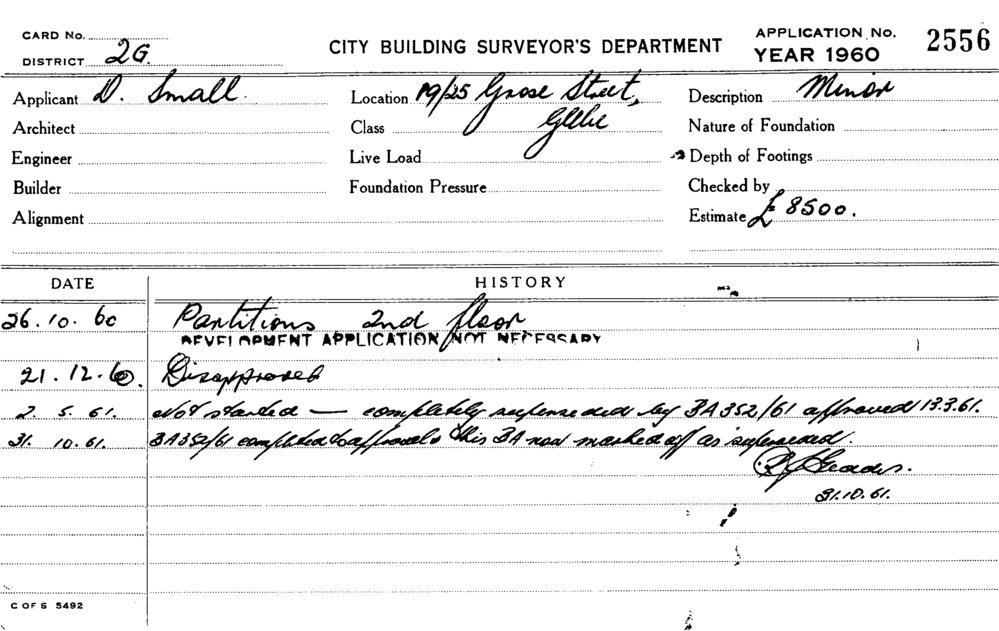 CARD No.
DISTRICT 2G.
CITY BUILDING SURVEYOR'S DEPARTMENT
APPLICATION No. 2556
YEAR 1960
Applicant D. Small.
Location 19/25 Grose Street,
Glebe
Description Minor
Architect
Class
Nature of Foundation
Engineer
Live Load
Depth of Footings
Builder
Foundation Pressure
Checked by
Alignment
Estimate £ 8500.
DATE HISTORY
26.10.60 Partitions 2nd floor
DEVELOPMENT APPLICATION NOT NECESSARY
21.12.60. Disapproved
2. 5. 61. Not started — completely superseded by BA352/61 approved 13.3.61.
31. 10. 61. BA352/61 completed to approval & this BA now marked off as superseded.
31.10.61.
C OF S 5492